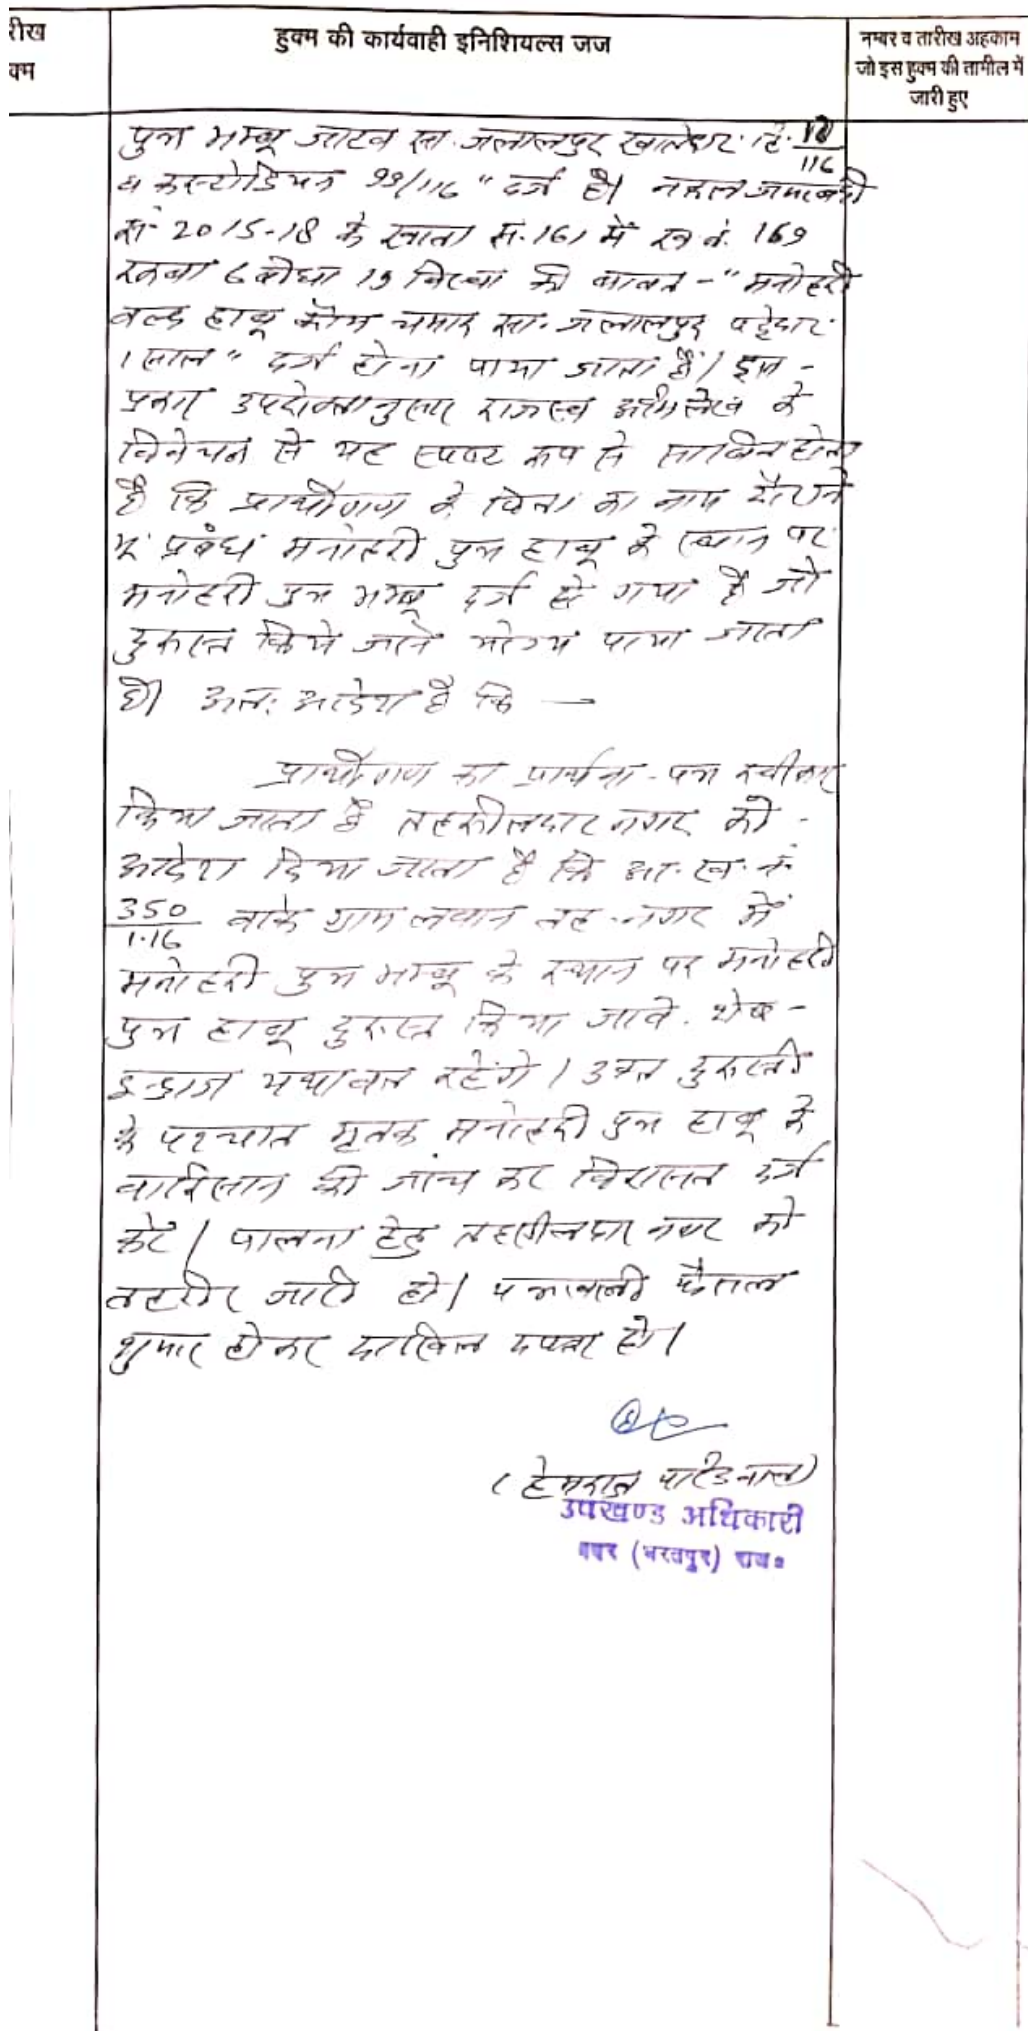 रीख
क्म
हुक्म की कार्यवाही इनिशियल्स जज
नम्बर व तारीख अहकाम
जो इस हुक्म की तामील में
जारी हुए
पुत्र मम्बू जाटव सा. जलालपुर खातेदार हि. 17/116
व कस्टोडियन 99/116 " दर्ज है। नकल जमाबंदी
सं. 2015-18 के खाता सं. 161 में ख नं. 169
रकबा 6 बीघा 19 बिस्वा की बाबत - " मनोहरी
वल्द हाबू कौम चमार सा. जलालपुर पट्टेदार
1 साल " दर्ज होना पाया जाता है। इस -
प्रकार उपरोक्तानुसार राजस्व अभिलेख के
विवेचन से यह स्पष्ट रूप से साबित होता
है कि प्रार्थीगण के पिता का नाम दौराने
भू प्रबंध मनोहरी पुत्र हाबू के स्थान पर
मनोहरी पुत्र मम्बू दर्ज हो गया है जो
दुरुस्त किये जाने योग्य पाया जाता
है। अतः आदेश है कि —
प्रार्थीगण का प्रार्थना - पत्र स्वीकार
किया जाता है तहसीलदार नगर को -
आदेश दिया जाता है कि आ. ख. नं.
350/1.16 वाके ग्राम लवान तह. नगर में
मनोहरी पुत्र मम्बू के स्थान पर मनोहरी
पुत्र हाबू दुरुस्त किया जावे. शेष -
इन्द्राज यथावत रहेंगे। उक्त दुरुस्ती
के पश्चात मृतक मनोहरी पुत्र हाबू के
वारिसान की जांच कर विरासत दर्ज
करें। पालना हेतु तहसीलदार नगर को
तहरीर जारी हो। पत्रावली फैसल
शुमार होकर दाखिल दफ्तर हो।
(हेमराज
उपखण्ड अधिकारी
नगर (भरतपुर) राज०